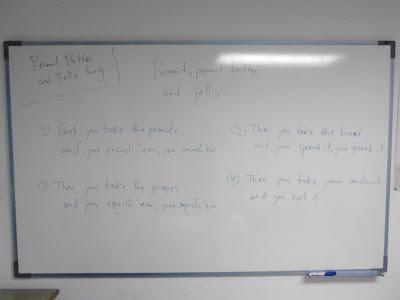 Peanut Butter
and Jelly Song
Peanut, peanut butter,
and jelly
① First you take the peanuts
and you crunch 'em, you crunch 'em
② Then you take the grapes
and you squish 'em, you squish 'em
③ Then you take the bread
and you spread it, you spread it
④ Then you take your sandwich
and you eat it